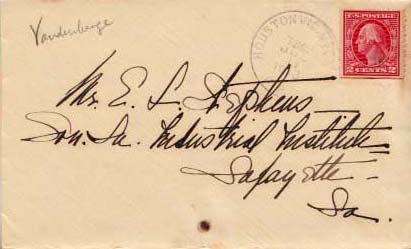 Vandenberge
HOUSTON
U.S. POSTAGE
2 CENTS 2
Mr. E. L. Stephens
Sou. La. Industrial Institute
Lafayette
La.